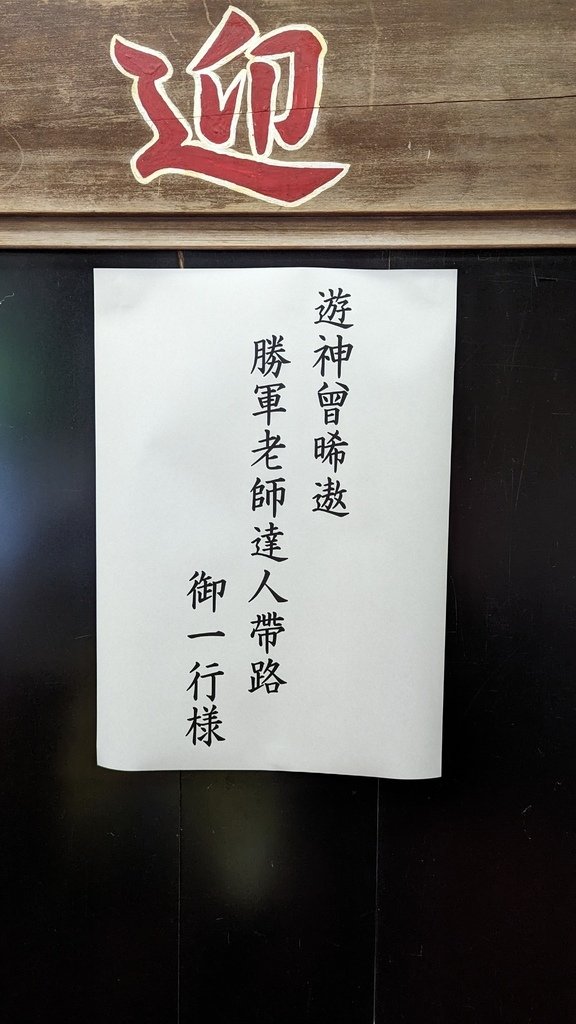 迎
遊神曾晞遨
勝軍老師達人帶路
御一行様